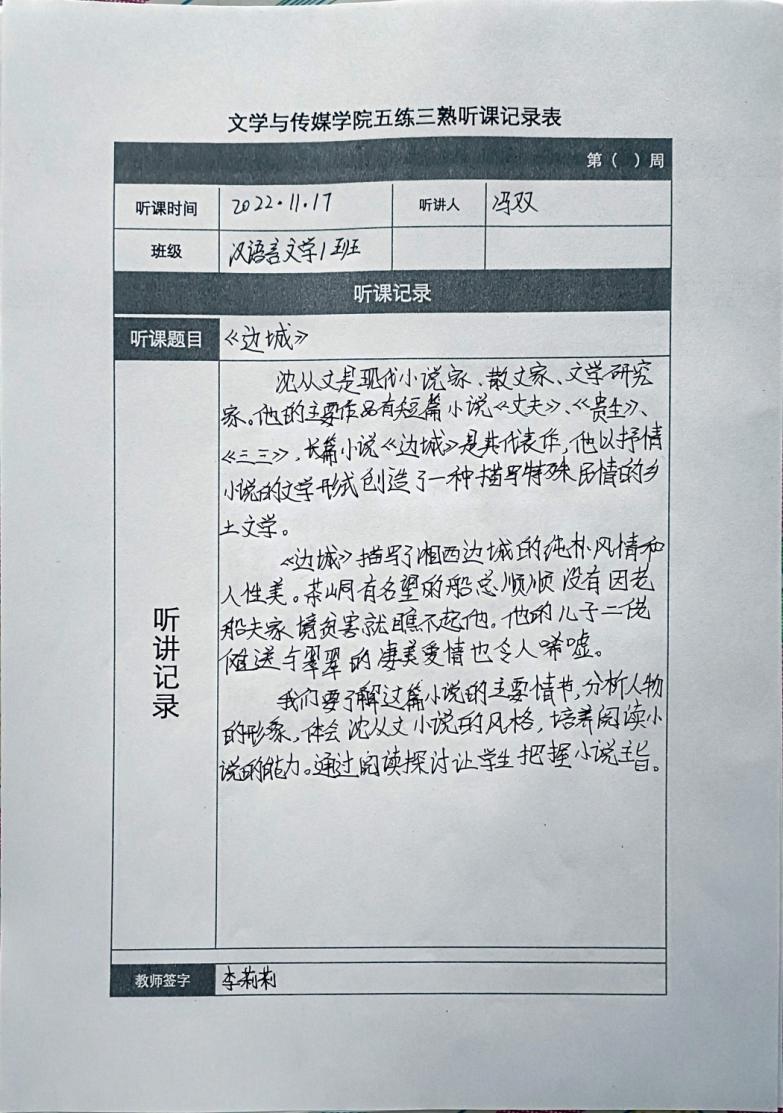 文学与传媒学院五练三熟听课记录表
第（ ）周
听课时间 2022.11.17 听讲人 冯双
班级 汉语言文学1班
听课记录
听课题目 《边城》
听讲记录
沈从文是现代小说家、散文家、文学研究
家。他的主要作品有短篇小说《丈夫》、《贵生》、
《三三》，长篇小说《边城》是其代表作，他以抒情
小说的文学形式创造了一种描写特殊民情的乡
土文学。
《边城》描写了湘西边城的纯朴风情和
人性美。茶峒有名望的船总顺顺没有因老
船夫家境贫害就瞧不起他。他的儿子二佬
傩送与翠翠的凄美爱情也令人唏嘘。
我们要了解这篇小说的主要情节，分析人物
的形象，体会沈从文小说的风格，培养阅读小
说的能力。通过阅读探讨让学生把握小说主旨。
教师签字 李莉莉